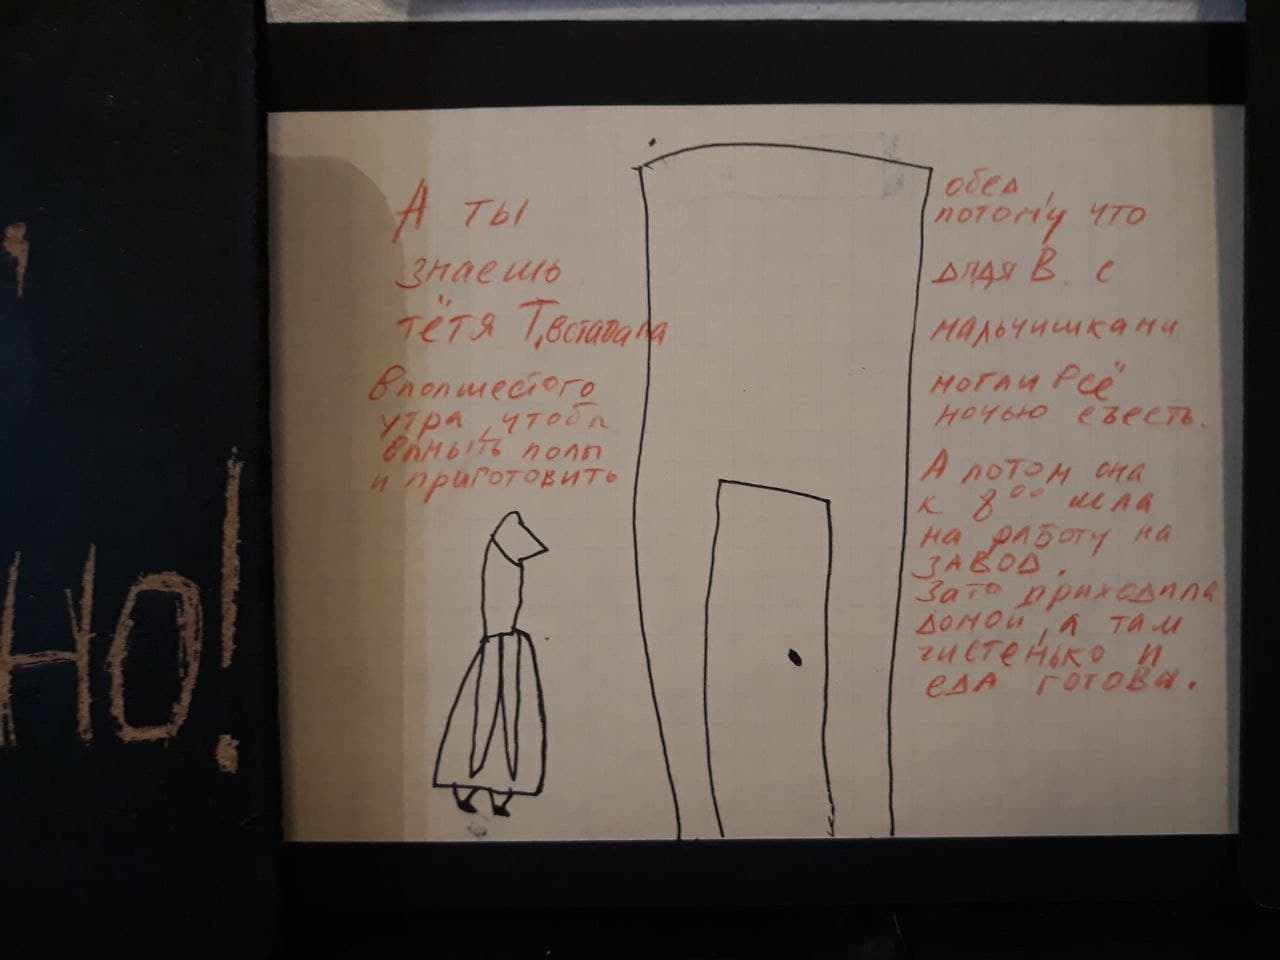 А ты
знаешь
тётя Т. вставала
в полшестого
утра, чтобы
вымыть полы
и приготовить
обед,
потому что
дядя В. с
мальчишками
могли всё
ночью съесть.
А потом она
к 8⁰⁰ шла
на работу на
ЗАВОД.
Зато приходила
домой, а там
чистенько и
еда готова.
НО!